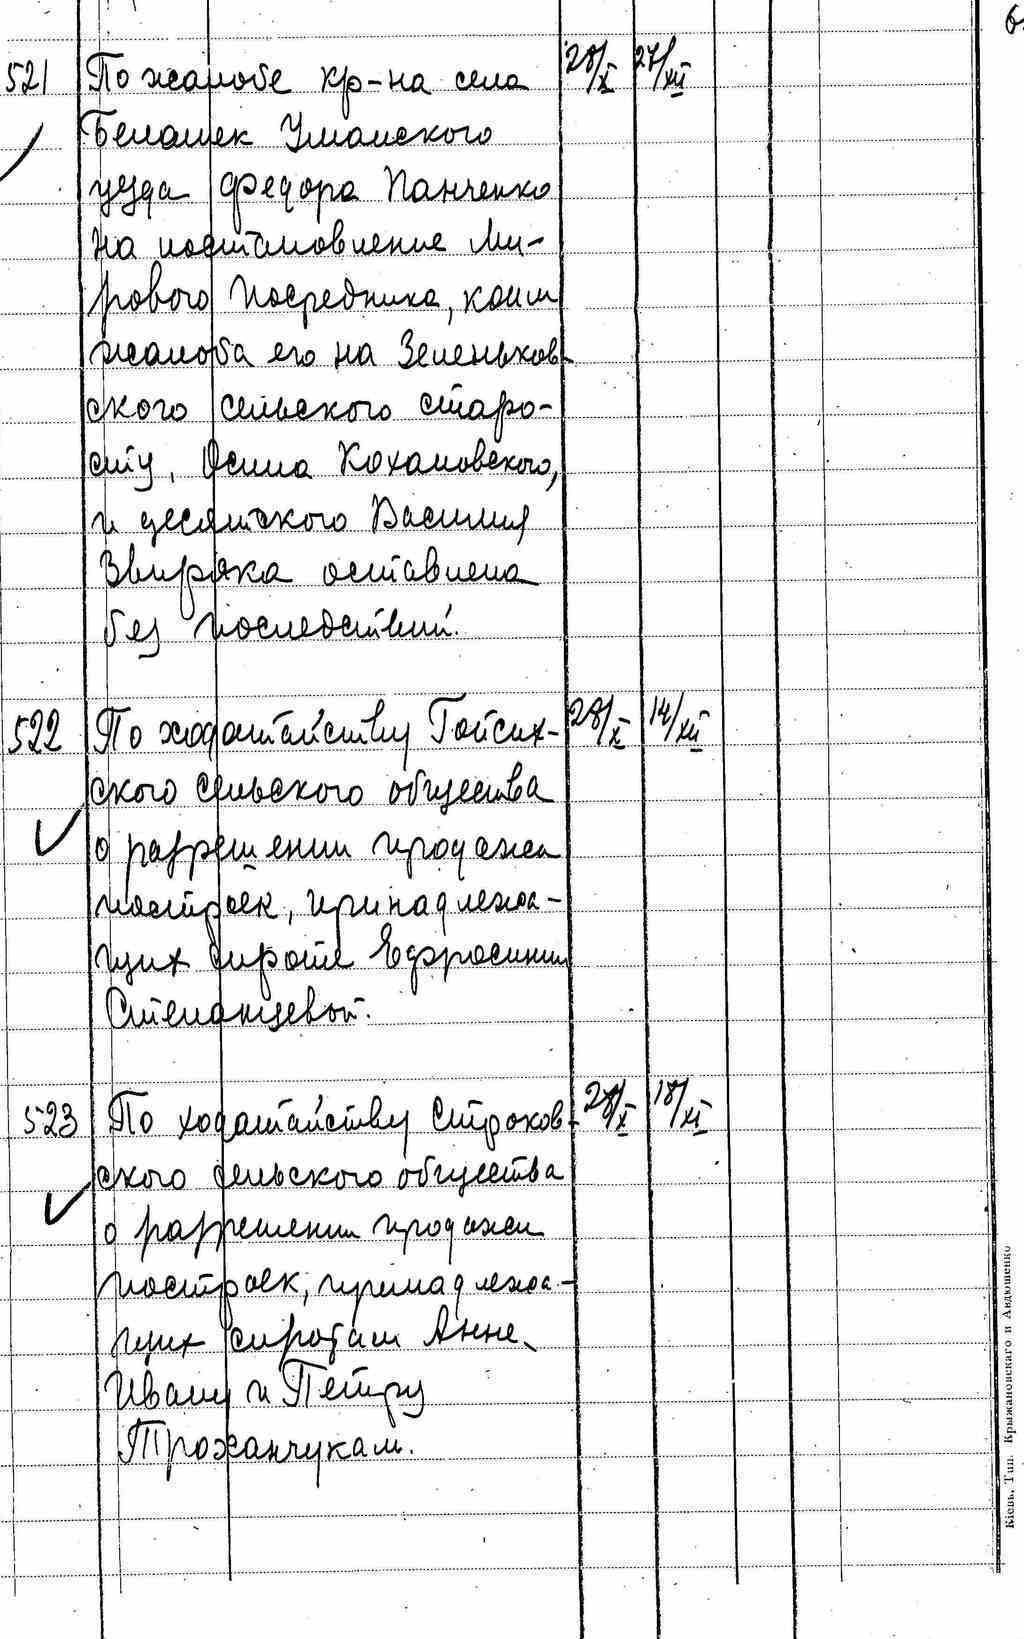 6
521 По жалобе кр-на села 28/X 27/XII
Белашек Уманского
уезда Федора Панченко
на постановление Ми-
рового Посредника, коим
жалоба его на Зеленьков-
ского сельского старо-
сту, Осипа Кохановского,
и десятского Василия
Звиряка оставлена
без последствий.
522 По ходатайству Гойсих- 28/X 14/XII
ского сельского общества
о разрешении продажи
построек, принадлежа-
щих сироте Ефросинии
Степанцевой.
523 По ходатайству Строков- 28/X 18/XI
ского сельского общества
о разрешении продажи
построек, принадлежа-
щих сиротам Анне,
Ивану и Петру
Трохачукам.
Кіевъ, Тип. Крыжановскаго и Авдюшенко